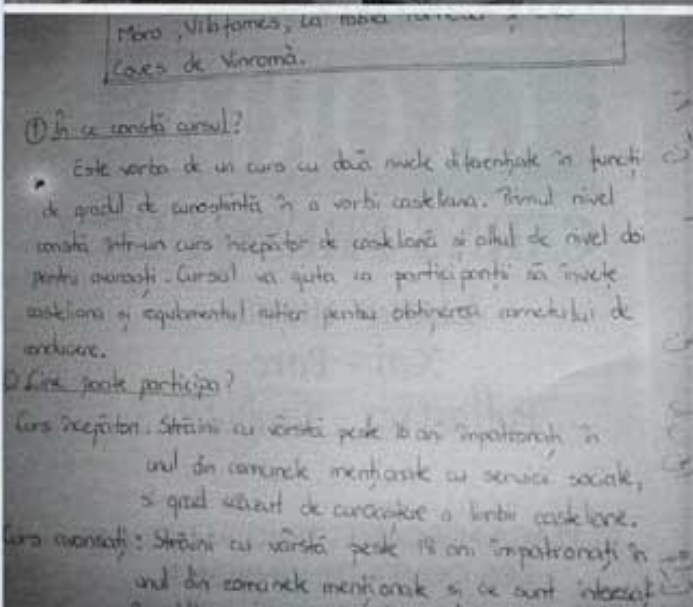 Moro, Vilafames, La
Coves de Vinromà.
① În ce constă cursul?
Este vorba de un curs cu două nivele diferențiate în funcți
de gradul de cunoștință în a vorbi castelana. Primul nivel
constă într-un curs începător de castelană și altul de nivel doi
pentru avansați. Cursul va ajuta ca participanții să învețe
castelana și regulamentul rutier pentru obținerea carnetului de
conducere.
Cine poate participa?
Curs începători: Străini cu vârsta peste 16 ani împatronați în
unul din comunele menționate cu servicii sociale,
și grad scăzut de cunoaștere a limbii castelane.
Curs avansați: Străini cu vârstă peste 18 ani împatronați în
unul din comunele menționate și ce sunt interesat